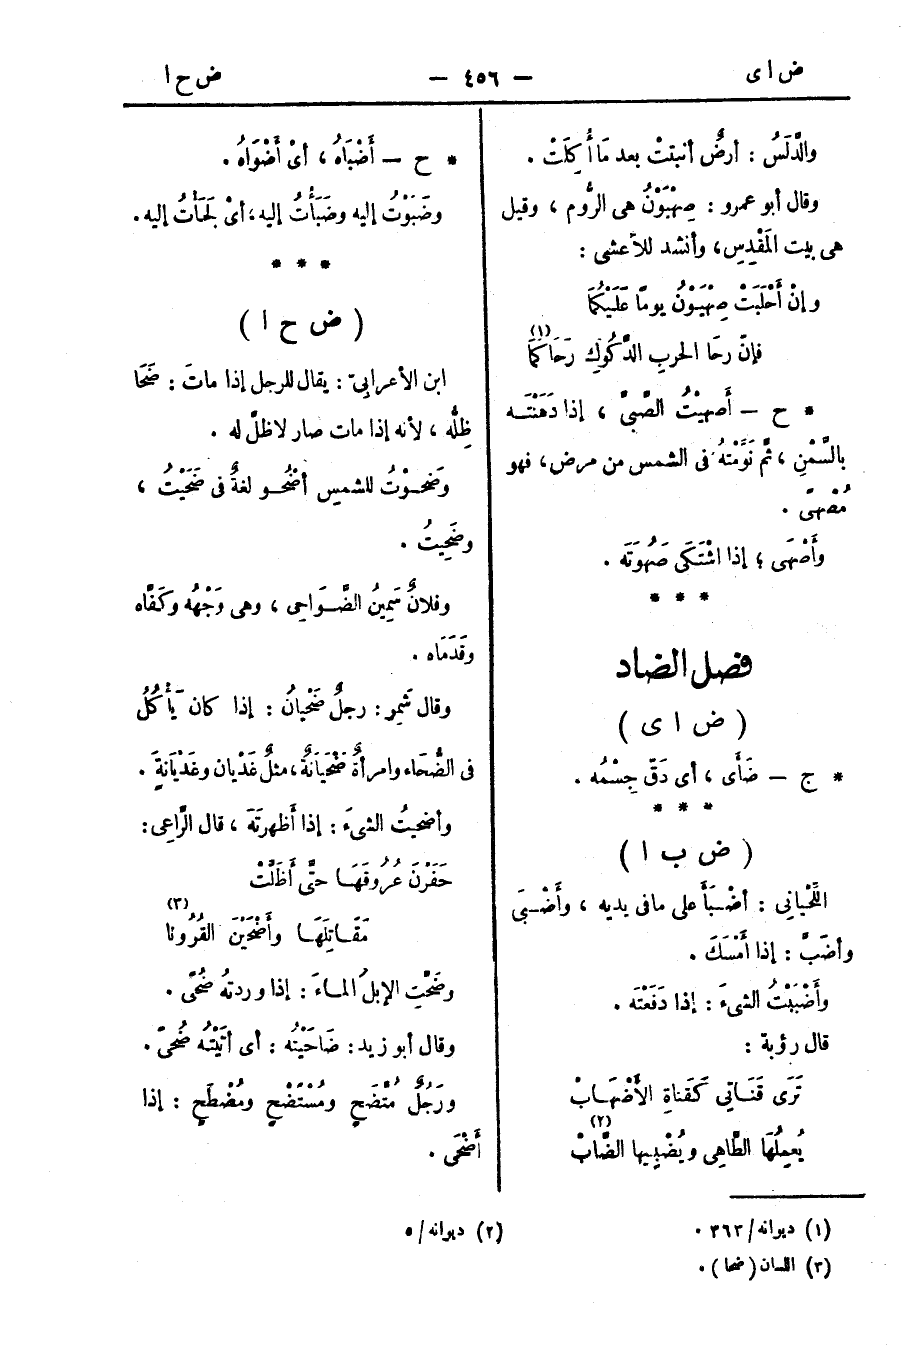 ض ا ى
— ٤٥٦ —
ض ح ا
والدَّلَسُ : أرضٌ أنبتتْ بعد مَا أُكِلَتْ .
وقال أبو عمرو : صِهْيَوْنُ هى الرُّوم ، وقيل
هى بيت المَقْدِسِ، وأنشد للأعشى :
وإنْ أَحْلَبَتْ صِهْيَوْنُ يومًا عَلَيْكُمَا
فإنّ رحَا الحربِ الدَّكُوكِ رَحَاكمَا (١)
* ح – أَصهيْتُ الصَّبىَّ ، إذا دَهَنْتَه
بالسَّمْنِ ، ثمَّ نَوَّمْتَهُ فى الشمس من مرض، فهو
مُصْهىً .
وأَصْهَى ؛ إذا اشْتَكَى صَهْوَتَه .
* * *
فصل الضاد
( ض ا ى )
* ح – ضَأَى ، أى دَقّ جِسْمُه .
* * *
( ض ب ا )
اللِّحْيانِى : أضْبَأَ على مافى يديه ، وأَضْبىَ
وأضَبَّ : إذا أَمْسَكَ .
وأَضْبَيْتُ الشىءَ : إذا دَفَعْتَه .
قال رؤبة :
تَرَى قَنَاتِى كَقَناةِ الأَضْهَابْ
يُعمِلُهَا الطَّاهِى ويُضْبِيها الضَّابْ (٢)
* ح – أَضْبَاهُ ، أىْ أَضْوَاهُ .
وضَبَوْتُ إليه وضَبَأْتُ إليه، أىْ لَجَأْتُ إليه.
* * *
( ض ح ا )
ابن الأعرابىّ : يقال للرجل إذا ماتَ : ضَحَا
ظِلُّه ، لأنه إذا مات صار لاظلَّ له .
وضَحَوْتُ للشمسِ أضْحُو لغةٌ فى ضَحَيْتُ ،
وضَحِيتُ .
وفلانٌ سَمِينُ الضَّوَاحِى ، وهى وَجْهُه وكَفَّاه
وقَدَمَاه .
وقال شَمِر : رجلٌ ضَحْيانُ : إذا كان يَأْكُلُ
فى الضُّحَاء وامرأةٌ ضَحْيَانَةٌ ، مثلُ غَدْيان وغَدْيَانَةٍ .
وأضحيتُ الشىءَ : إذا أظهرتَه ، قال الرَّاعِى:
حَفَرْنَ عُرُوقَهَا حتَّى أَظَلَّتْ
مَقَاتِلَهَا وأَضْحَيْنَ القُرُونَا (٣)
وضَحَّتِ الإبلُ الماءَ : إذا وردتهُ ضُحًى .
وقال أبو زيد : ضَاحَيْتُه : أى أتيْتُه ضُحىً .
ورَجُلٌ مُتَضَحٍ ومُسْتَضْحٍ ومُضْطَحٍ : إذا
أَضْحَى .
(١) ديوانه/ ٣٦٣ .
(٢) ديوانه/ ٥
(٣) اللسان (ضحا) .